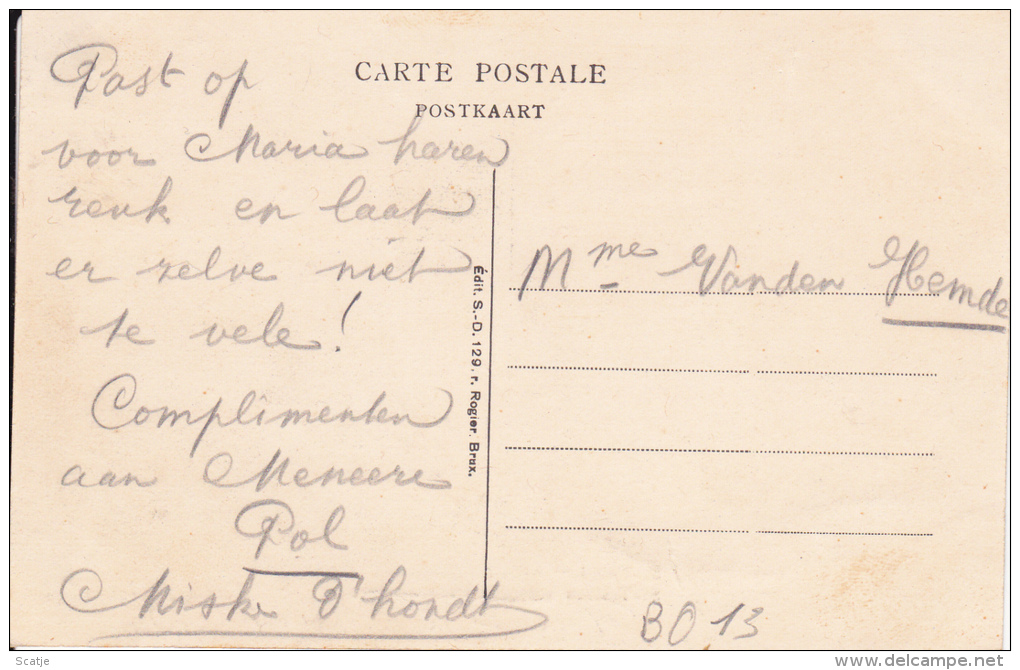 CARTE POSTALE
POSTKAART
Past op
voor Maria haren
reuk en laat
er zelve niet
te vele!
Complimenten
aan Meneere
Pol
Miske D'hondt
Édit. S.-D. 129, r. Rogier. Brux.
Mme Vanden Hemde
BO 13
Scatje
http://www.delcampe.net